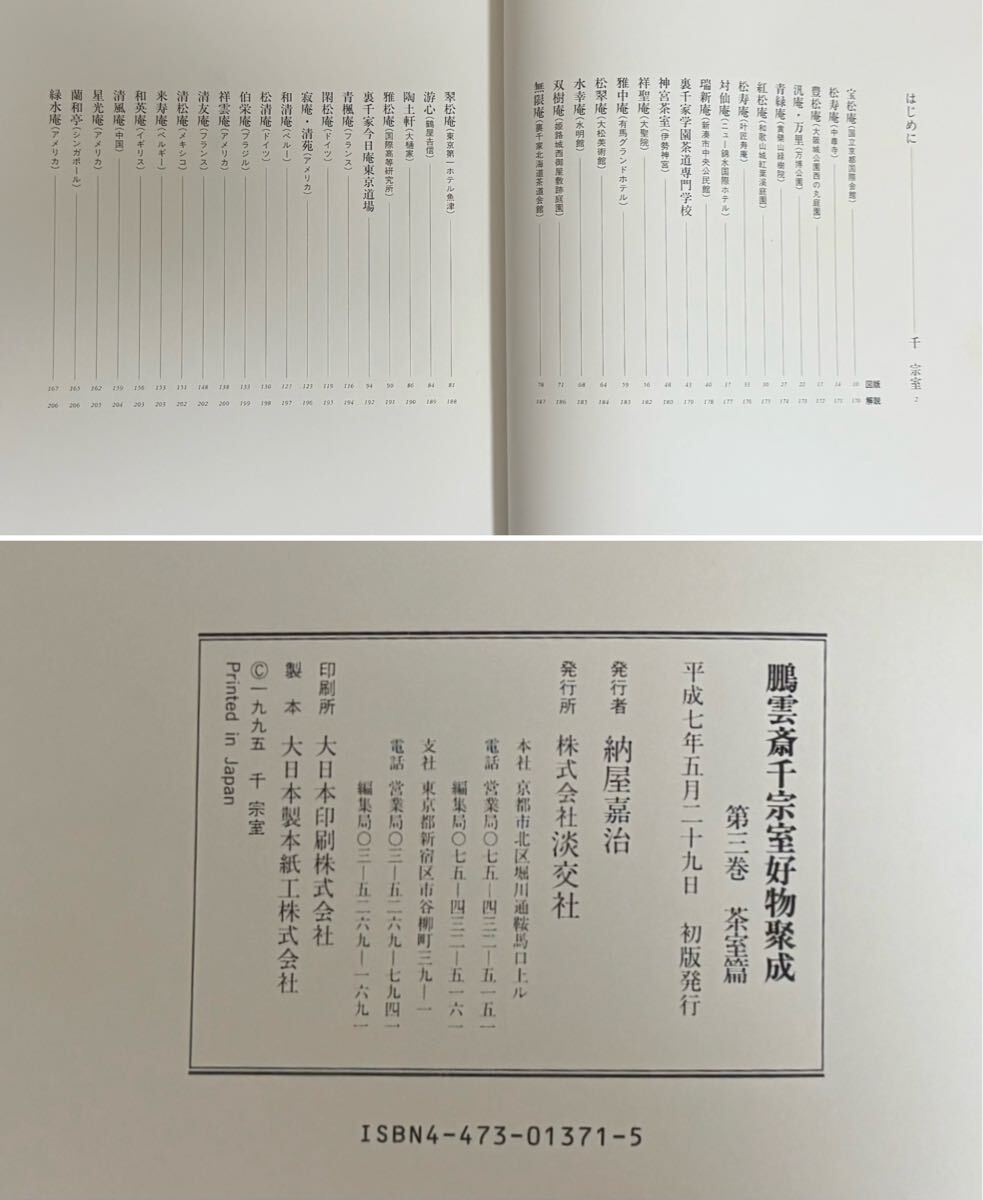 はじめに 千 宗室 2
図版 解説
宝松庵(国立京都国際会館) 10 170
松寿庵(中尊寺) 14 171
豊松庵(大阪城公園西の丸庭園) 17 172
汎庵・万里(万博公園) 22 173
青緑庵(黄檗山緑樹院) 27 174
紅松庵(和歌山城紅葉渓庭園) 30 175
松寿庵(叶匠寿庵) 33 176
対仙庵(ニュー錦水国際ホテル) 37 177
瑞新庵(新湊市中央公民館) 40 178
裏千家学園茶道専門学校 43 179
神宮茶室(伊勢神宮) 48 180
祥聖庵(大聖院) 56 182
雅中庵(有馬グランドホテル) 59 183
松翠庵(大松美術館) 64 184
水幸庵(水明館) 68 185
双樹庵(姫路城西御屋敷跡庭園) 71 186
無限庵(裏千家北海道茶道会館) 78 187
翠松庵(東京第一ホテル魚津) 81 188
游心(鶴屋吉信) 84 189
陶土軒(大樋家) 86 190
雅松庵(国際高等研究所) 90 191
裏千家今日庵東京道場 94 192
青楓庵(フランス) 116 194
閑松庵(ドイツ) 119 195
寂庵・清苑(アメリカ) 123 196
和清庵(ペルー) 127 197
松清庵(ドイツ) 130 198
伯栄庵(ブラジル) 133 199
祥雲庵(アメリカ) 138 200
清友庵(フランス) 148 202
清松庵(メキシコ) 151 202
来寿庵(ベルギー) 153 203
和英庵(イギリス) 156 203
清風庵(中国) 159 204
星光庵(アメリカ) 162 205
蘭和亭(シンガポール) 165 206
緑水庵(アメリカ) 167 206
鵬雲斎千宗室好物聚成
第三巻 茶室篇
平成七年五月二十九日 初版発行
発行者 納屋嘉治
発行所 株式会社淡交社
本社 京都市北区堀川通鞍馬口上ル
電話 営業局〇七五―四三二―五一五一
編集局〇七五―四三二―五一六一
支社 東京都新宿区市谷柳町三九―一
電話 営業局〇三―五二六九―七九四一
編集局〇三―五二六九―一六九一
印刷所 大日本印刷株式会社
製本 大日本製本紙工株式会社
©一九九五 千 宗室
Printed in Japan
ISBN4-473-01371-5